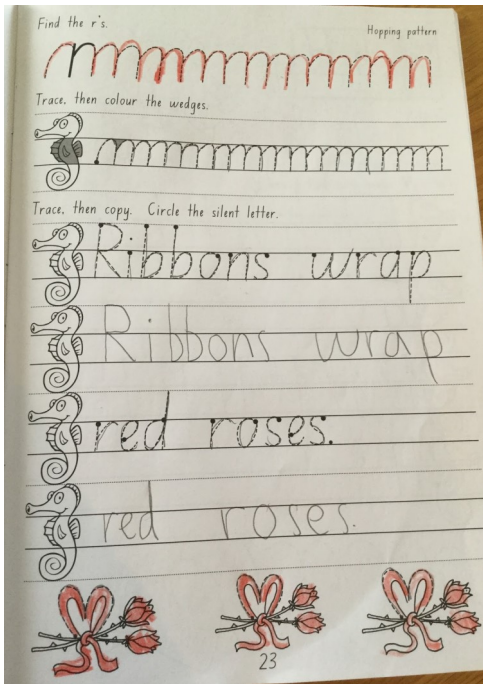 Find the r's.
Hopping pattern
Trace, then colour the wedges.
Trace, then copy. Circle the silent letter.
Ribbons wrap
Ribbons wrap
red roses.
red roses.
23